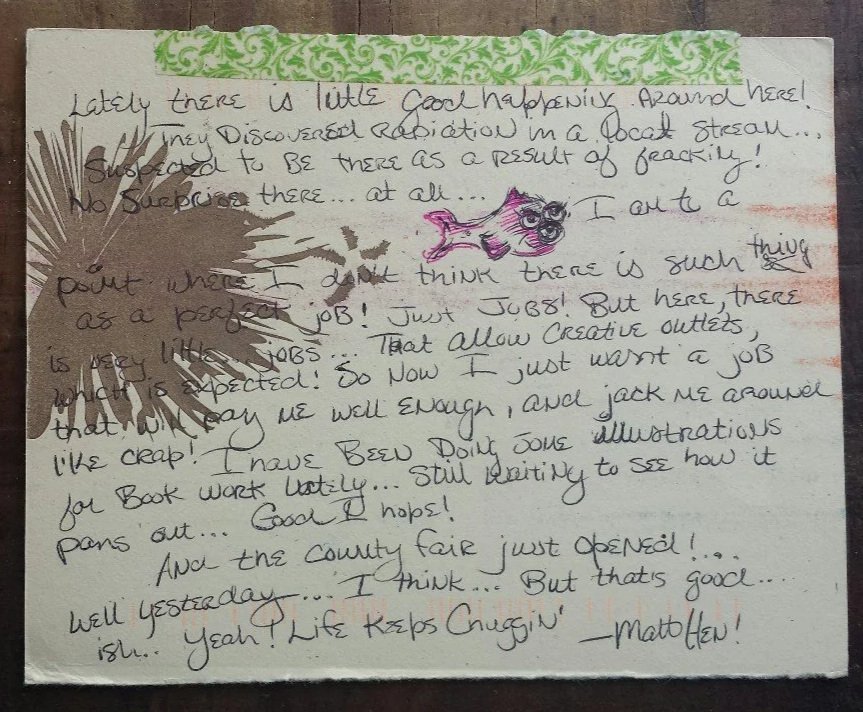 Lately there is little good happening around here!
They Discovered Radiation in a local stream...
Suspected to be there as a result of fracking!
No Surprise there... at all...
I am to a
point where I don't think there is such thing
as a perfect job! Just Jobs! But here, there
is very little... jobs... That allow creative outlets,
which is expected! So now I just want a job
that will pay me well enough, and jack me around
like crap! I have been doing some illustrations
for Book work lately... still waiting to see how it
pans out... Good I hope!
And the county fair just opened!...
well yesterday.... I think... But that's good....
ish... Yeah! Life keeps Chuggin'
—Matthen!